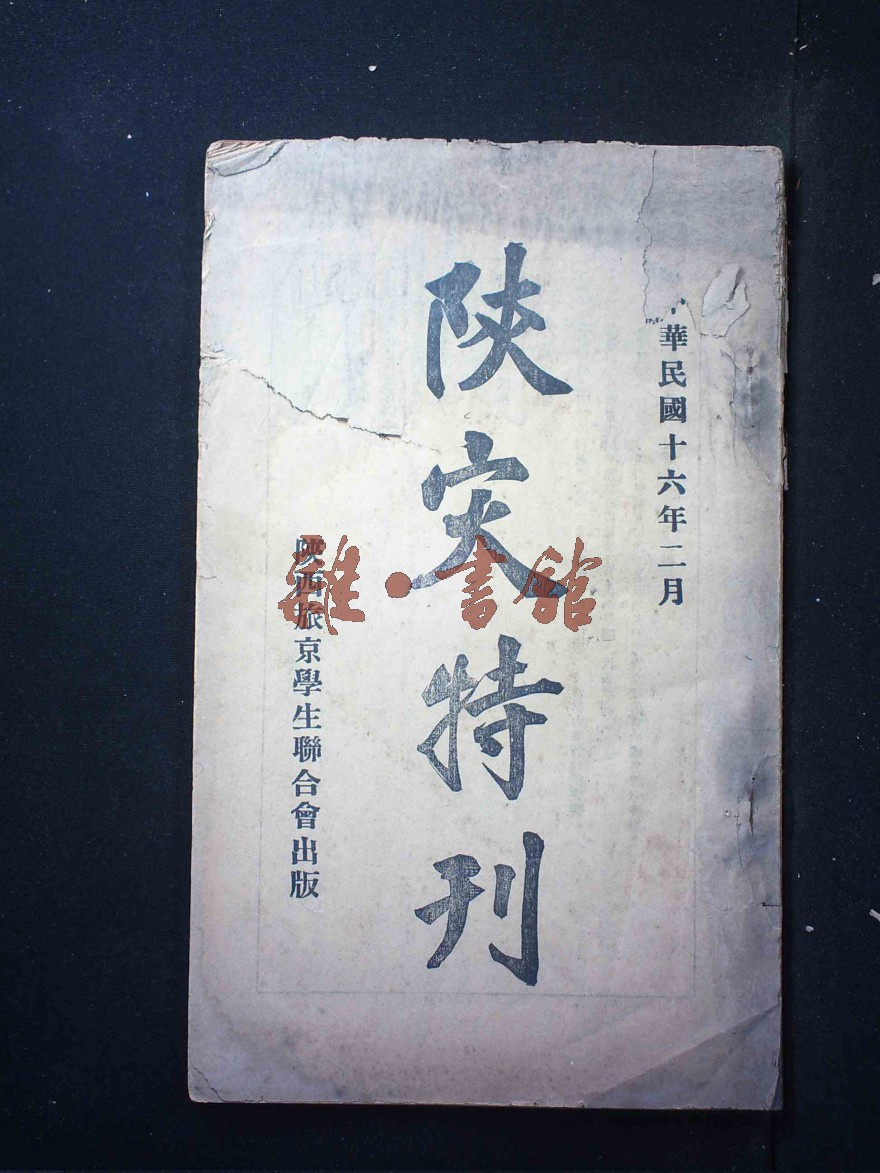 中華民國十六年二月
陝灾特刊
陝西旅京學生聯合會出版
雜·書館